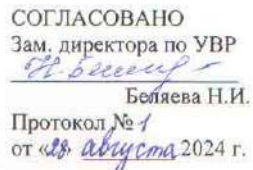 СОГЛАСОВАНО
Зам. директора по УВР
Н. Беляева
Беляева Н.И.
Протокол № 1
от «28» августа 2024 г.